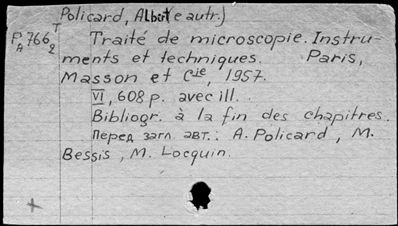 Policard, Albert (e autr.)
PA766 T2 Traité de microscopie. Instru-
ments et techniques. Paris,
Masson et Cie, 1957.
VI, 608 p. avec ill.
Bibliogr. à la fin des chapitres.
Перед загл. авт.: A. Policard, M.
Bessis, M. Locquin.
+